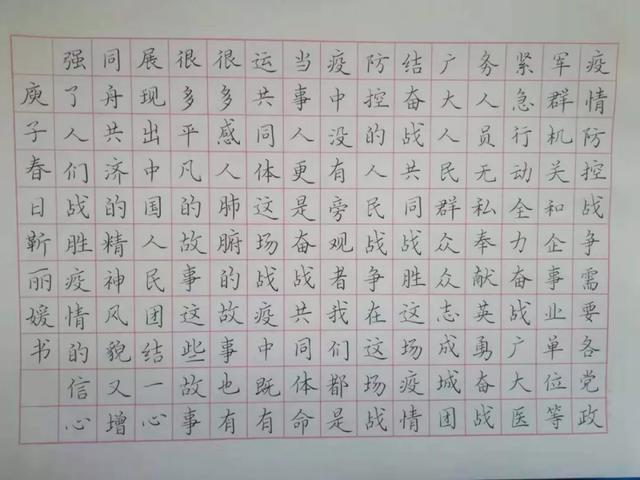 疫情防控战争需要各党政
军群机关和企事业单位等
紧急行动全力奋战广大医
务人员无私奉献英勇奋战
广大人民群众众志成城团
结奋战共同战胜这场疫情
防控的人民战争在这场战
疫中没有旁观者我们都是
当事人更是奋战共同体命
运共同体这场战疫中既有
很多感人肺腑的故事也有
很多平凡的故事这些故事
展现出中国人民团结一心
同舟共济的精神风貌又增
强了人们战胜疫情的信心
庚子春日靳丽媛书